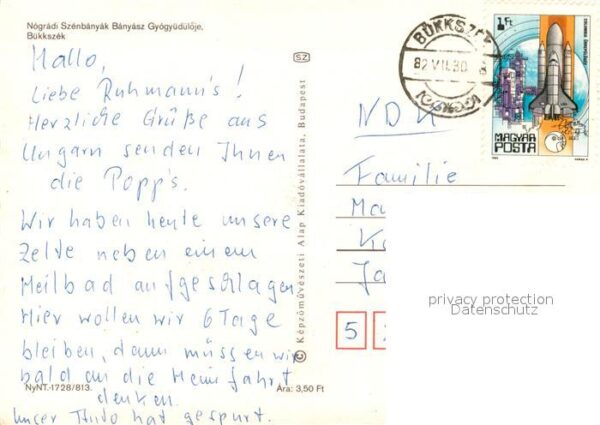 Nógrádi Szénbányák Bányász Gyógyüdülője,
Bükkszék
Hallo,
Liebe Ruhmann's!
Herzliche Grüße aus
Ungarn senden Ihnen
die Popp's.
Wir haben heute unsere
Zelte neben einem
Heilbad aufgeschlagen
Hier wollen wir 6 Tage
bleiben, dann müssen wir
bald an die Heimfahrt
denken.
Unser Auto hat gespurt.
NyNT.-1728/813.
Ára: 3,50 Ft
SZ
© Képzőművészeti Alap Kiadóvállalata, Budapest
BÜKKSZÉK
82 VII. 30
1 Ft
MAGYAR
POSTA
NDK
Familie
Ma
K
Ja
5
privacy protection
Datenschutz